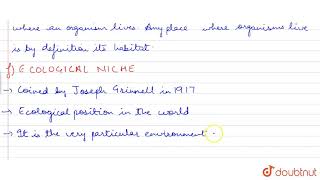 where an organism lives. Any place where organisms live
is by definition its habitat.
f) ECOLOGICAL NICHE
→ Coined by Joseph Grinnell in 1917
→ Ecological position in the world
→ It is the very particular environment
doubtnut